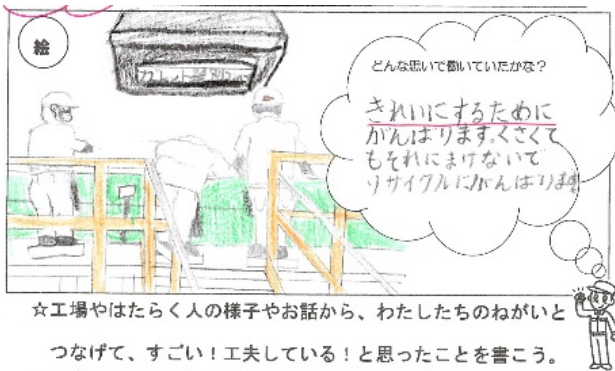 絵
どんな思いで働いていたかな?
きれいにするために
がんばります。くさくて
もそれにまけないで
リサイクルにがんばります
☆工場やはたらく人の様子やお話から、わたしたちのねがいと
つなげて、すごい!工夫している!と思ったことを書こう。